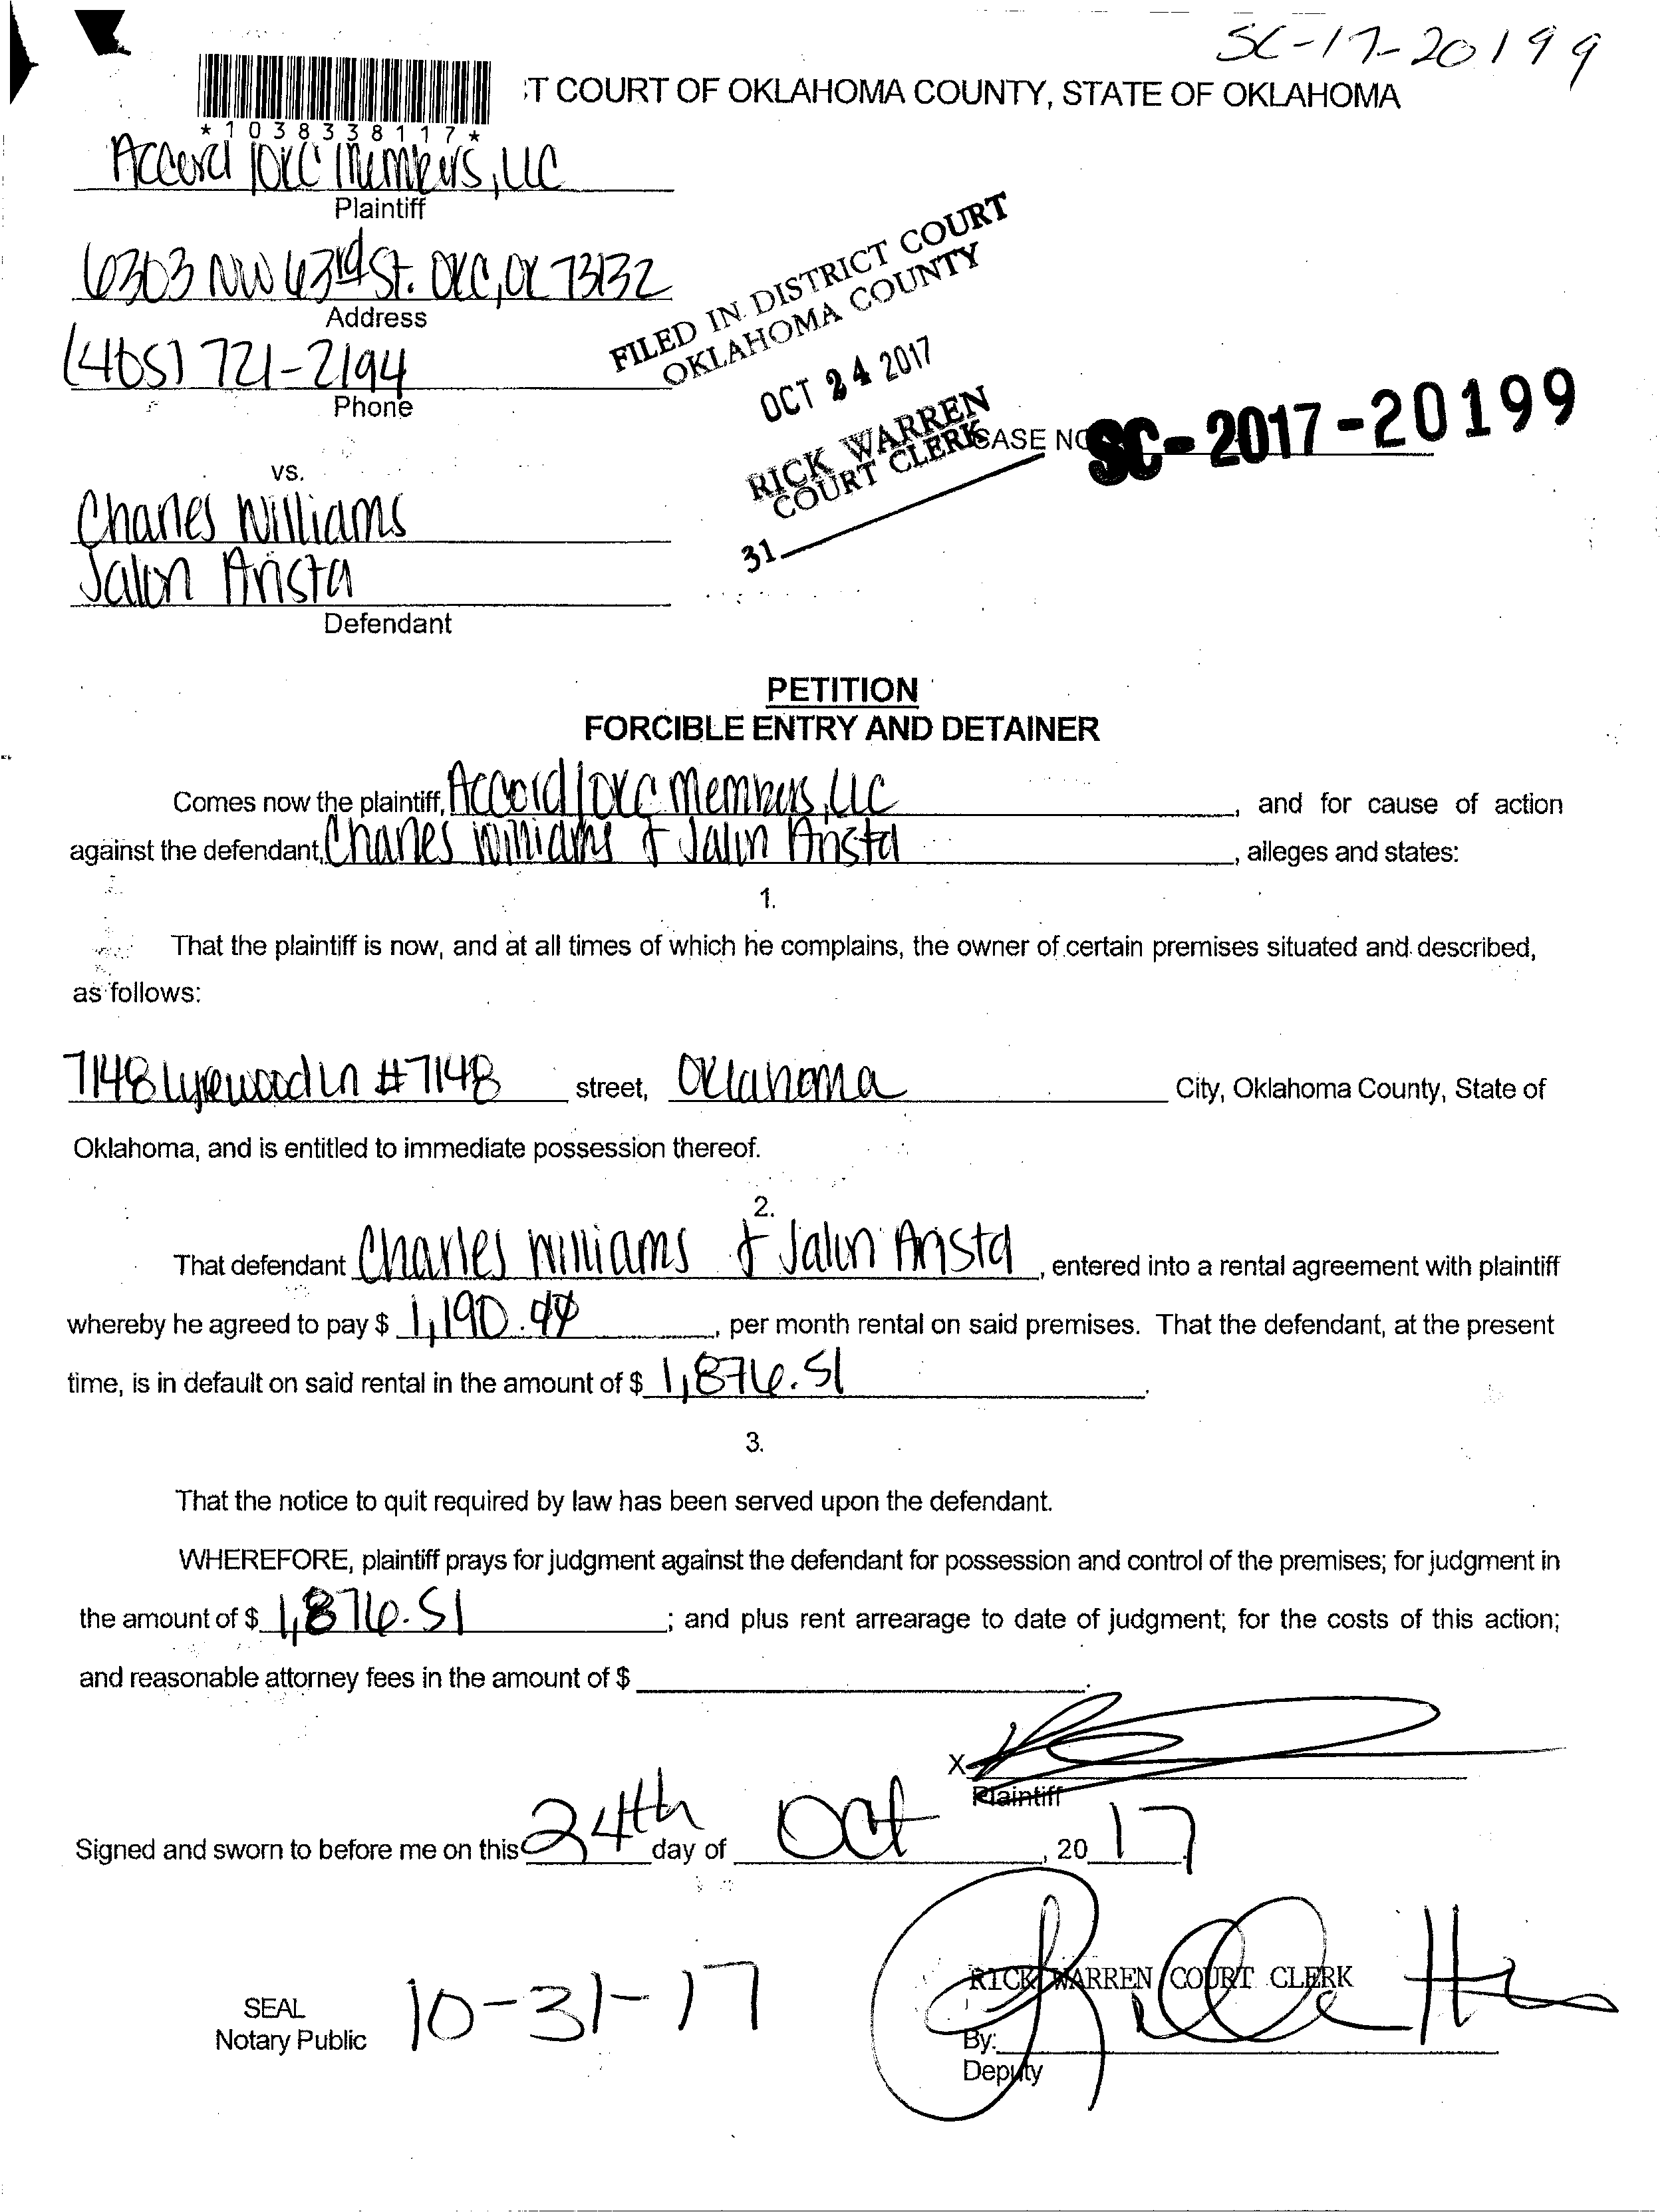 SC-17-20199
T COURT OF OKLAHOMA COUNTY, STATE OF OKLAHOMA
*1038338117*
Accord/OKC Members, LLC
Plaintiff
6303 NW 63rd St. OKC, OK 73132
Address
(405) 721-2194
Phone
FILED IN DISTRICT COURT
OKLAHOMA COUNTY
OCT 24 2017
RICK WARREN
COURT CLERK
31
CASE NO SC-2017-20199
vs.
Charles Williams
Jalin Arista
Defendant
PETITION
FORCIBLE ENTRY AND DETAINER
Comes now the plaintiff, Accord/OKC Members, LLC, and for cause of action
against the defendant, Charles Williams & Jalin Arista, alleges and states:
1.
That the plaintiff is now, and at all times of which he complains, the owner of certain premises situated and described,
as follows:
7148 Lyrewood Ln #7148 street, Oklahoma City, Oklahoma County, State of
Oklahoma, and is entitled to immediate possession thereof.
2.
That defendant Charles Williams & Jalin Arista, entered into a rental agreement with plaintiff
whereby he agreed to pay $ 1,190.44, per month rental on said premises. That the defendant, at the present
time, is in default on said rental in the amount of $ 1,876.51.
3.
That the notice to quit required by law has been served upon the defendant.
WHEREFORE, plaintiff prays for judgment against the defendant for possession and control of the premises; for judgment in
the amount of $ 1,876.51; and plus rent arrearage to date of judgment; for the costs of this action;
and reasonable attorney fees in the amount of $
X
Plaintiff
Signed and sworn to before me on this 24th day of Oct, 2017.
RICK WARREN COURT CLERK
SEAL
Notary Public
10-31-17
By:
Deputy